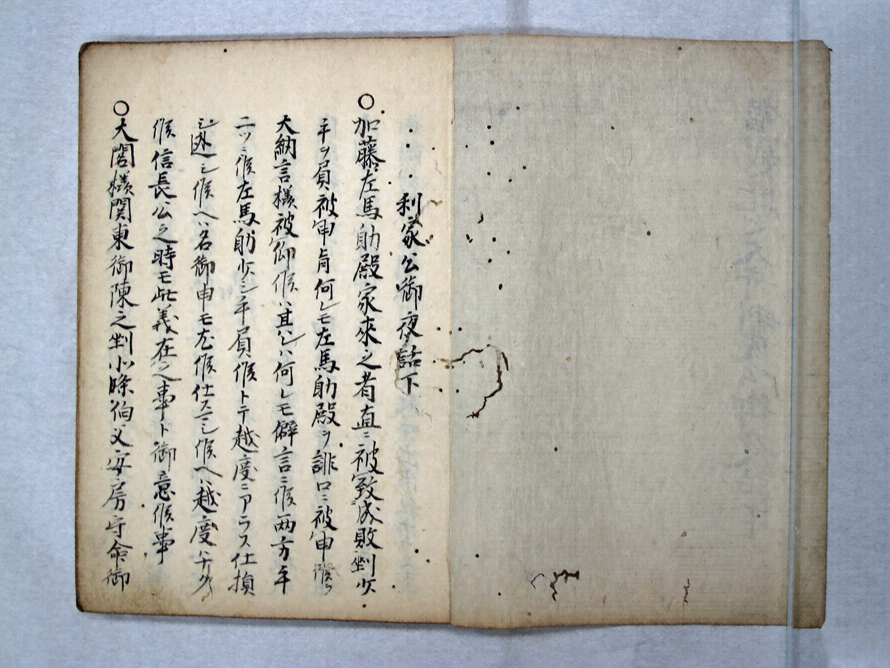 利家公御夜話下
○加藤左馬助殿家来之者直ニ被致成敗剉少
手ヲ負被申上何レモ左馬助殿ヲ誹口ニ被申候ヲ
大納言様被仰候ハ其ハ何レモ僻言ニ候両方手
ニツ候左馬助少シ手負候トテ越度ニアラス仕損
シ述シ候ヘハ名御申モ尤候仕スマシ候ヘハ越度ハナク
候信長公之時モ此義在之事ト御意候事
○大閤様関東御陳之剉小條伯父安房守命御